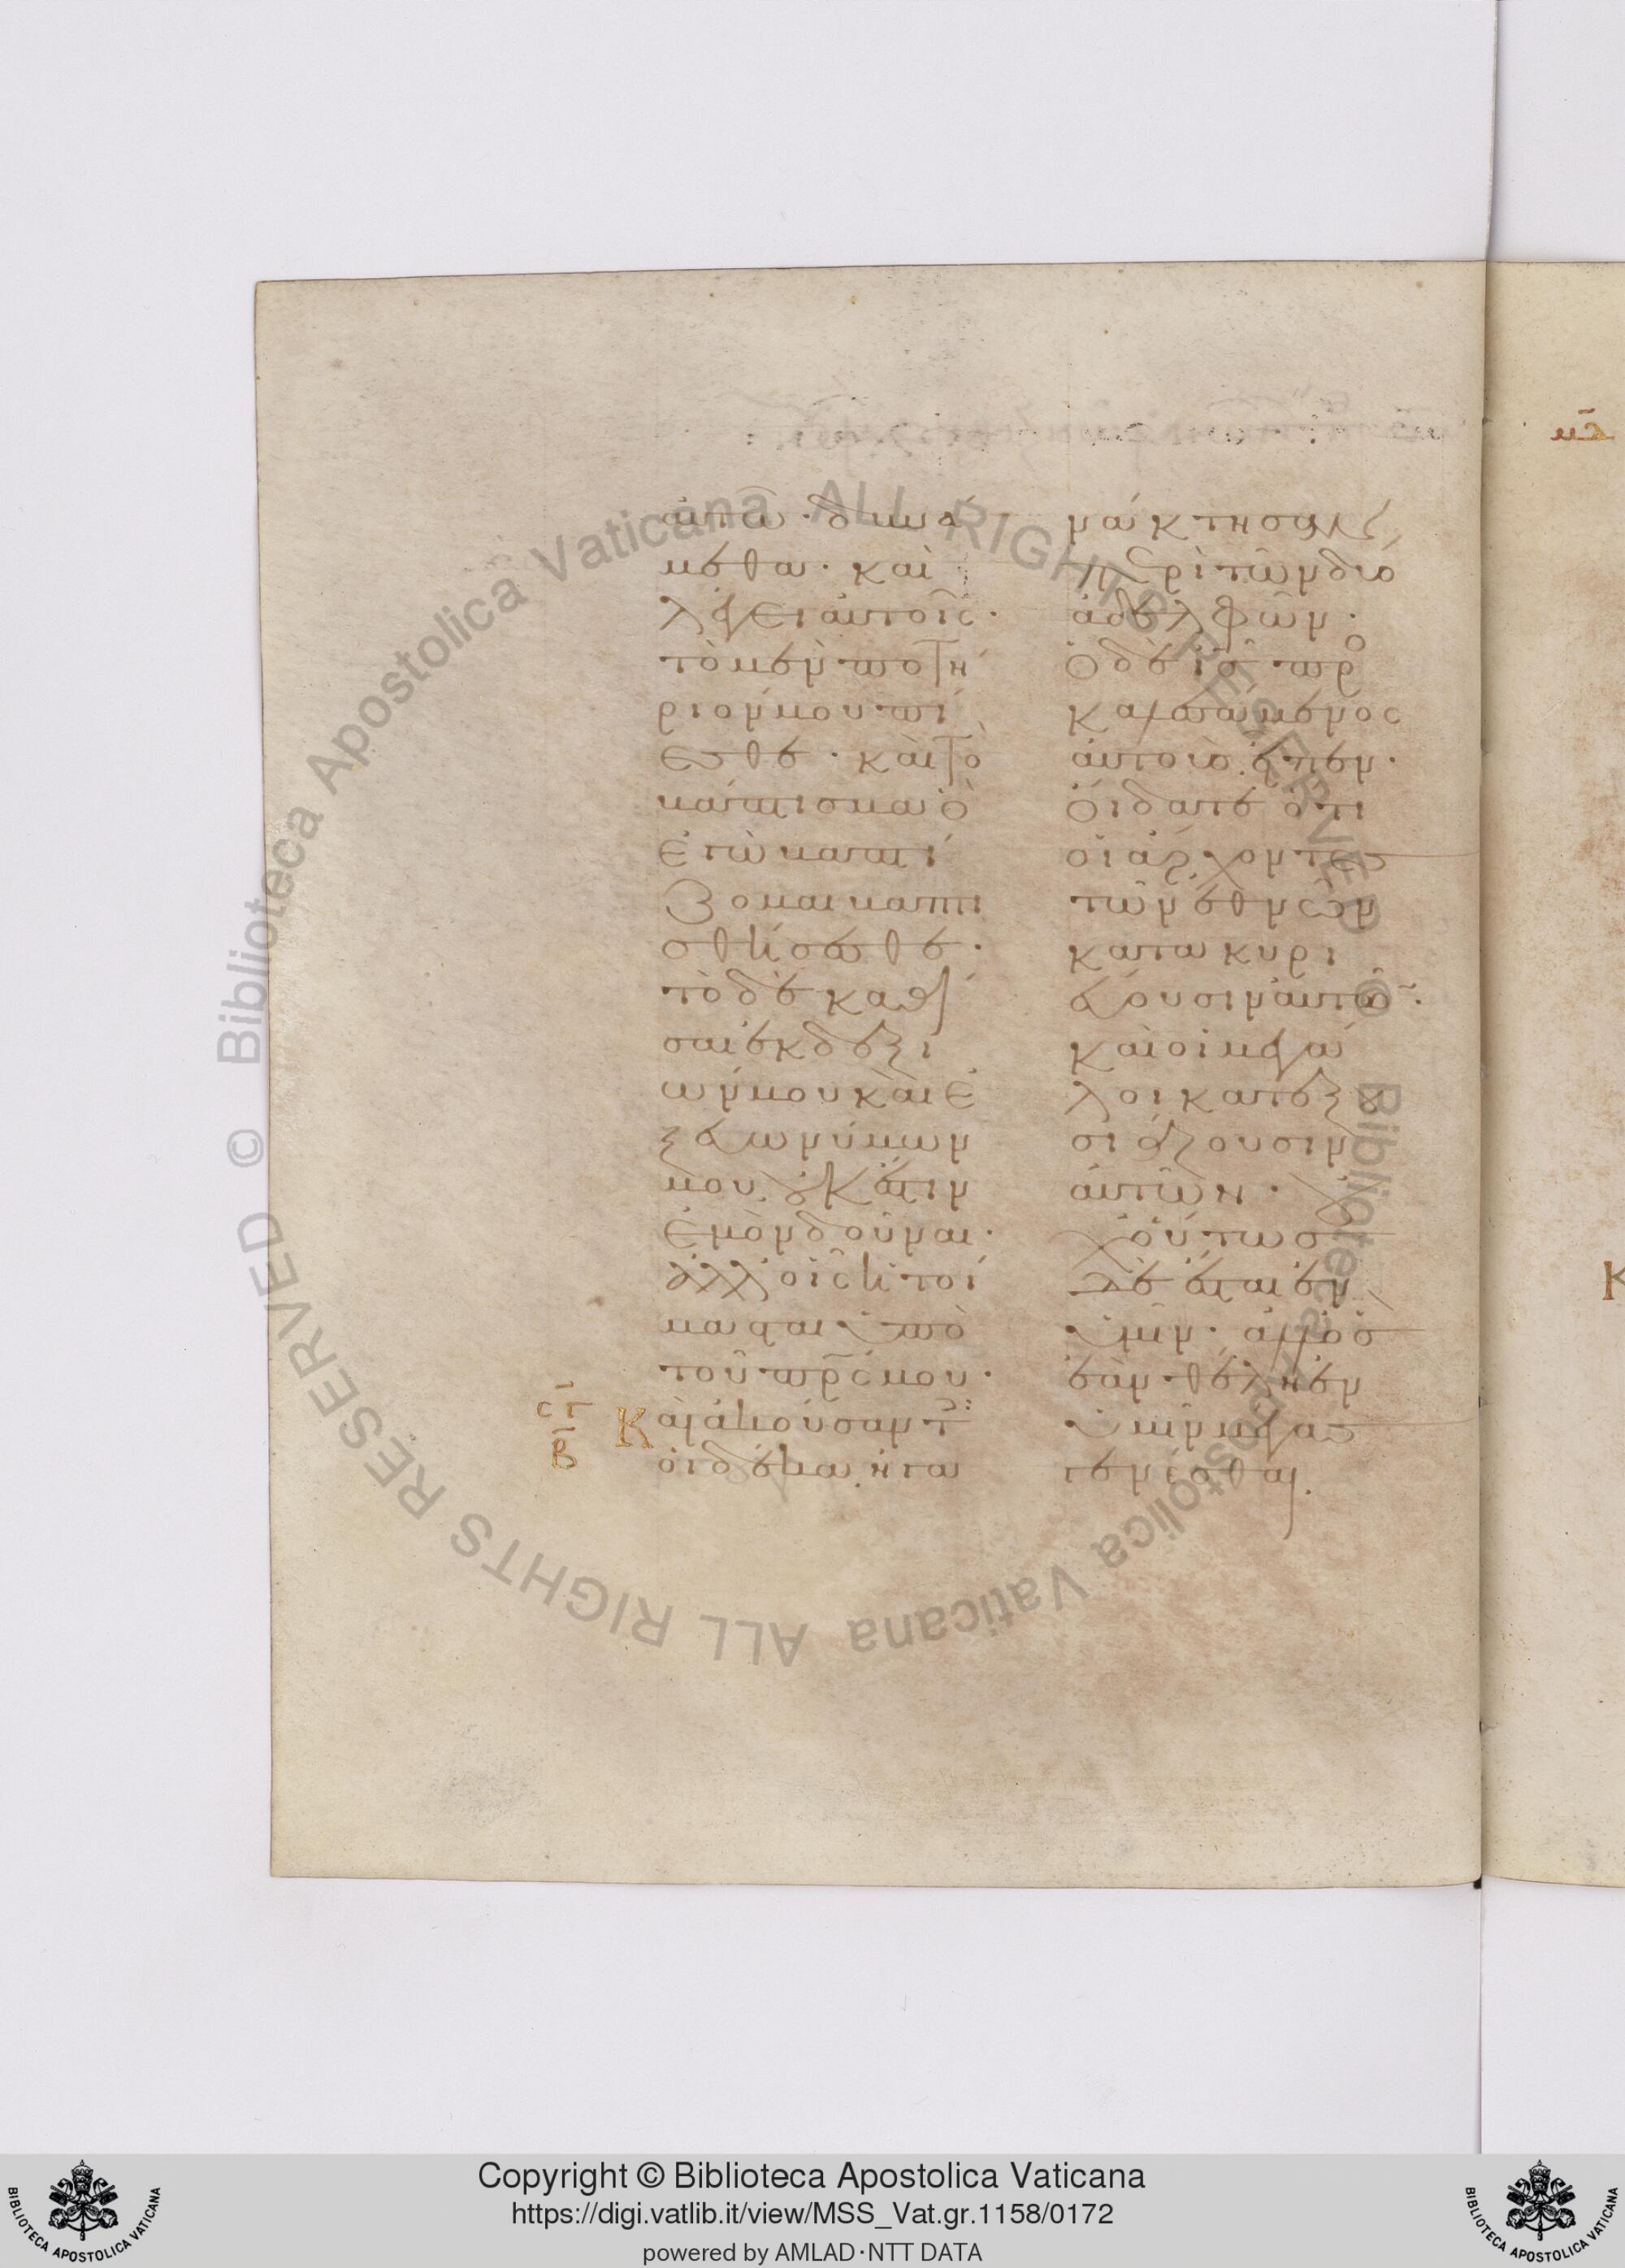 αὐτῶ· δυνά
μεθα· καὶ
λέγει αὐτοῖς·
τὸ μὲν ποτή
ριόν μου πί
εσθε· καὶ τὸ
βάπτισμα ὃ
ἐγὼ βαπτί
ζομαι βαπτι
σθήσεσθε·
τὸ δὲ καθί
σαι ἐκ δεξι
ῶν μου καὶ ἐ
ξ εὐωνύμων
μου, οὐκ ἔστιν
ἐμὸν δοῦναι·
ἀλλ' οἷς ἡτοί
μασται ὑπὸ
τοῦ πρς μου·
Καὶ ἀκούσαντ
οἱ δέκα, ἠγα
νάκτησαν
περὶ τῶν δύο
ἀδελφῶν·
Ὁ δὲ ις προ
καλεσάμενος
αὐτοὺς εἶπεν·
Οἴδατε ὅτι
οἱ ἄρχοντες
τῶν ἐθνῶν
κατακυρι
εύουσιν αὐτῶν·
καὶ οἱ μεγά
λοι κατεξου
σιάζουσιν
αὐτῶν·
οὐχ οὕτως
δὲ ἔσται ἐν
ὑμῖν· ἀλλ' ὃς
ἐὰν θέλη ἐν
ὑμῖν μέγας
γενέσθαι.
Copyright © Biblioteca Apostolica Vaticana
https://digi.vatlib.it/view/MSS_Vat.gr.1158/0172
powered by AMLAD·NTT DATA
BIBLIOTECA APOSTOLICA VATICANA
BIBLIOTECA APOSTOLICA VATICANA
© Biblioteca Apostolica Vaticana ALL RIGHTS RESERVED
© Biblioteca Apostolica Vaticana ALL RIGHTS RESERVED